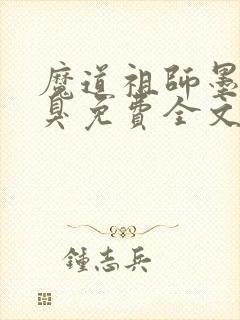 魔道祖師墨
臭免費全文
鍾志兵